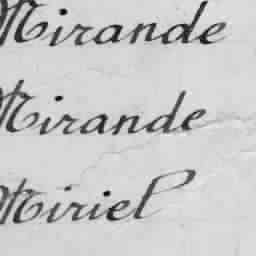 Mirande
Mirande
Miriel